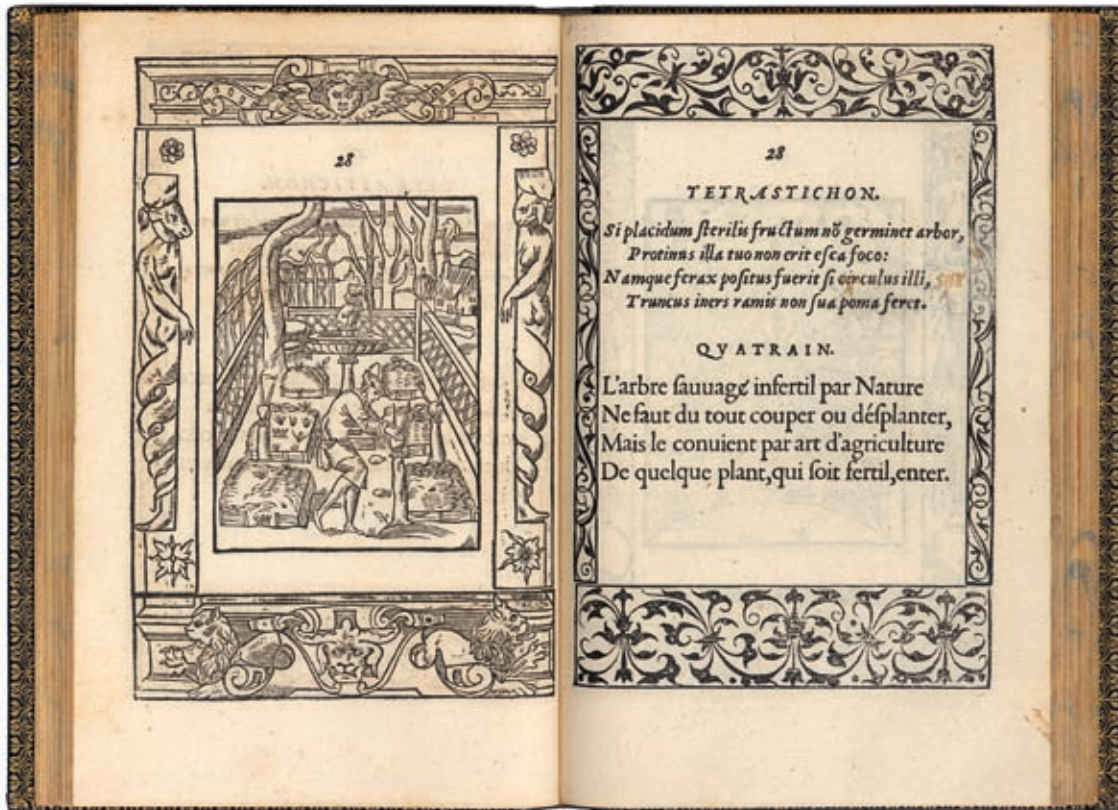 28
28
TETRASTICHON.
Si placidum ſterilis fructum nõ germinet arbor,
Protinus illa tuo non erit eſca foco:
Namque ferax poſitus fuerit ſi circulus illi,
Truncus iners ramis non ſua poma feret.
QVATRAIN.
L'arbre ſauuage infertil par Nature
Ne faut du tout couper ou déſplanter,
Mais le conuient par art d'agriculture
De quelque plant, qui ſoit fertil, enter.